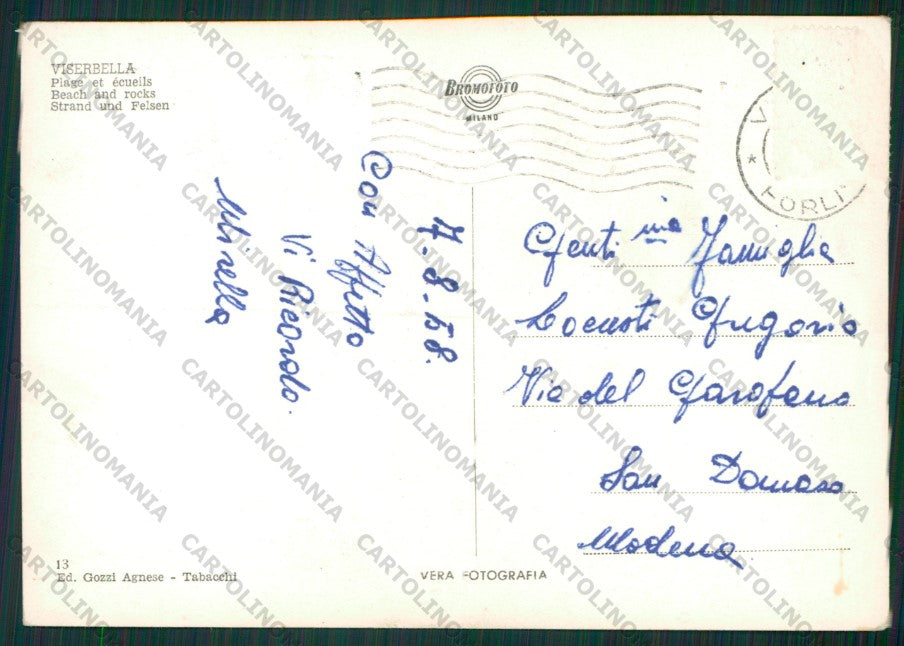 VISERBELLA
Plage et écueils
Beach and rocks
Strand und Felsen
BROMOFOTO
MILANO
V
* FORLI
7.8.58.
Con Affetto
Vi Ricordo.
Mirella
Gent.ma Famiglia
Locasti Gregorio
Via del Garofano
San Damaso
Modena
13
Ed. Gozzi Agnese - Tabacchi
VERA FOTOGRAFIA
CARTOLINOMANIA